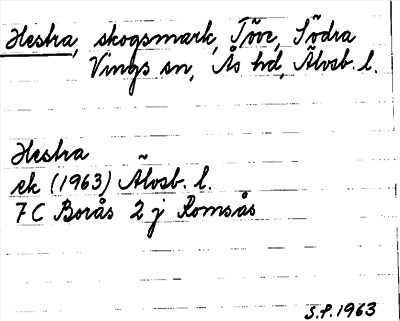 Hestra, skogsmark, Töve, Södra
Vings sn, Ås hd, Älvsb. l.
Hestra
ek (1963) Älvsb. l.
7C Borås 2 j Romsås
S.P. 1963